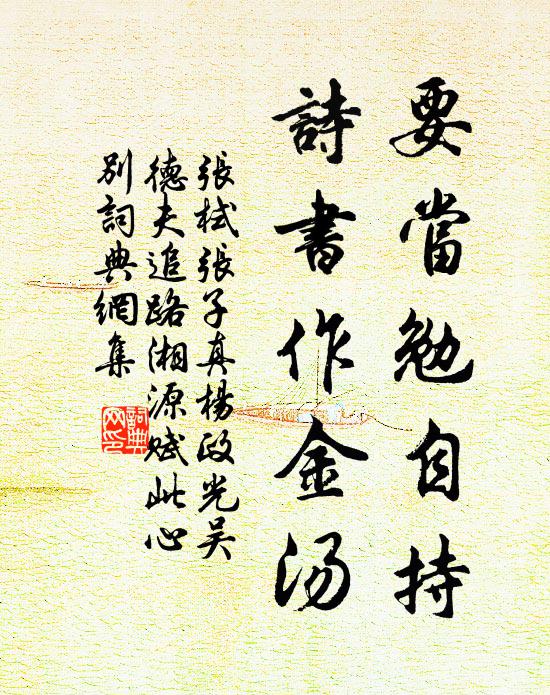 要當勉自持
詩書作金湯
張栻張子真楊政光吳
德夫追路湘源賦此心
別詞典網集
詞典网印